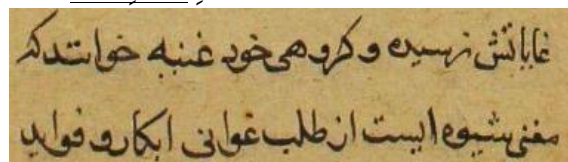 غایاتش نرسیده و کروهی خود غنیه خوانند که
مغنی شیوه ایست از طلب غوانی ابکار و فواید